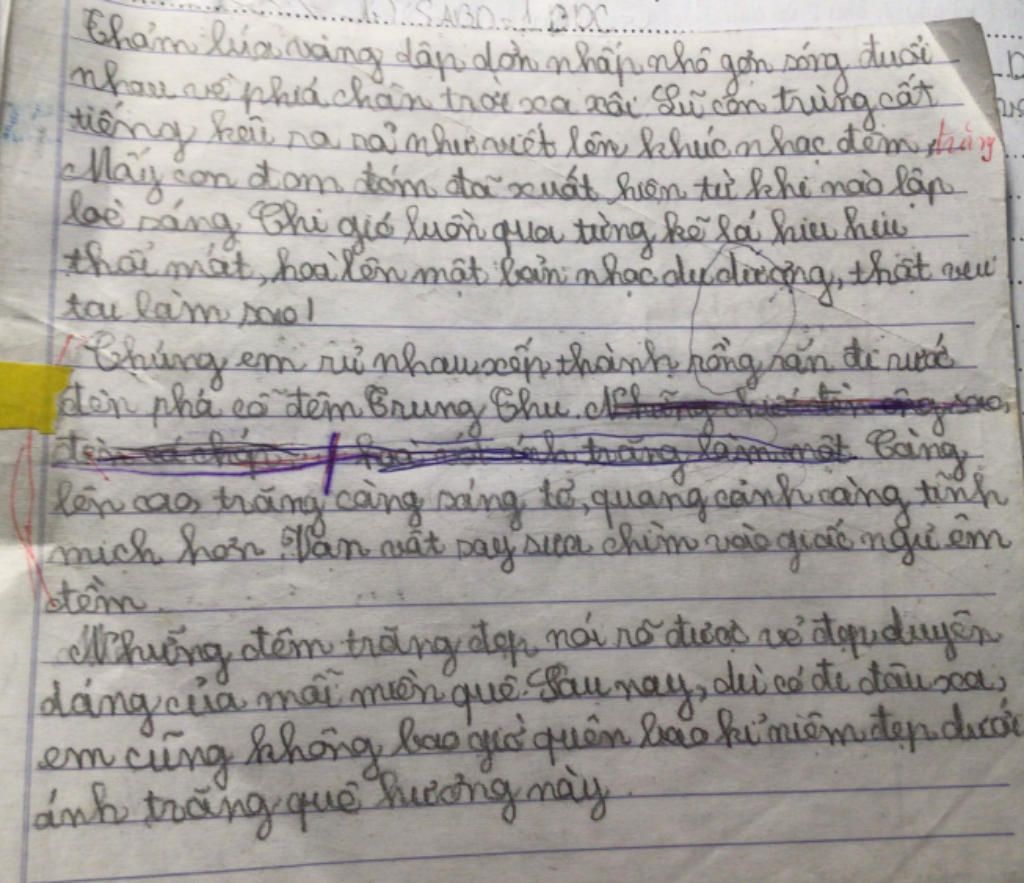 Thảm lúa vàng dập dờn nhấp nhô gợn sóng đuổi
nhau về phiá chân trời xa xôi. Lũ côn trùng cất
tiếng kêu ra rả như viết lên khúc nhạc đêm, trăng
Mấy con đom đóm đã xuất hiện từ khi nào lập
loè sáng. Chị gió luồn qua từng kẽ lá hiu hiu
thổi mát, hoà lên một bản nhạc du dương, thật vui
tai làm sao!
Chúng em rủ nhau xếp thành rồng rắn đi rước
đèn phá cỗ đêm Trung Thu.
Càng
lên cao, trăng càng sáng tỏ, quang cảnh càng tĩnh
mịch hơn. Vạn vật say sưa chìm vào giấc ngủ êm
đềm.
Những đêm trăng đẹp nói rõ được vẻ đẹp duyên
dáng của mỗi miền quê. Sau nay, dù có đi đâu xa,
em cũng không bao giờ quên bao kỉ niệm đẹp dưới
ánh trăng quê hương này.